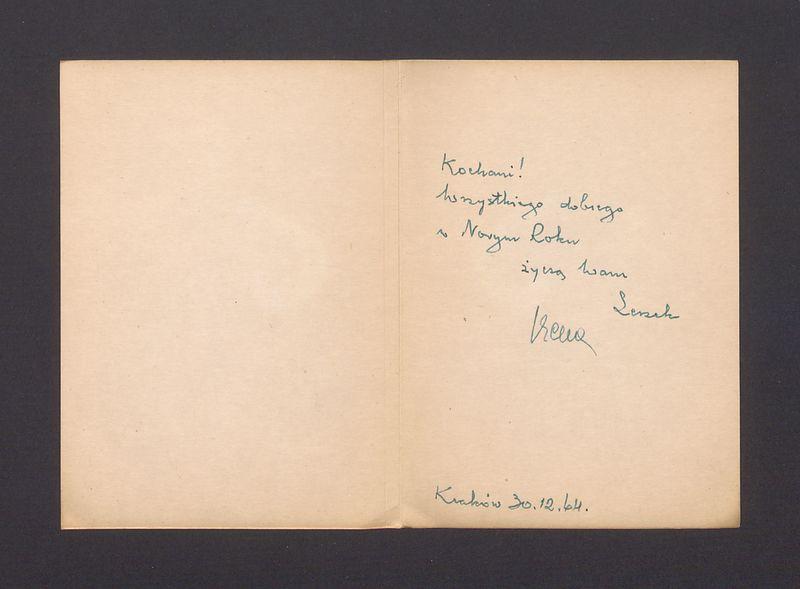 Kochani!
Wszystkiego dobrego
w Nowym Roku
życzą Wam
Leszek
Irena
Kraków 30.12.64.